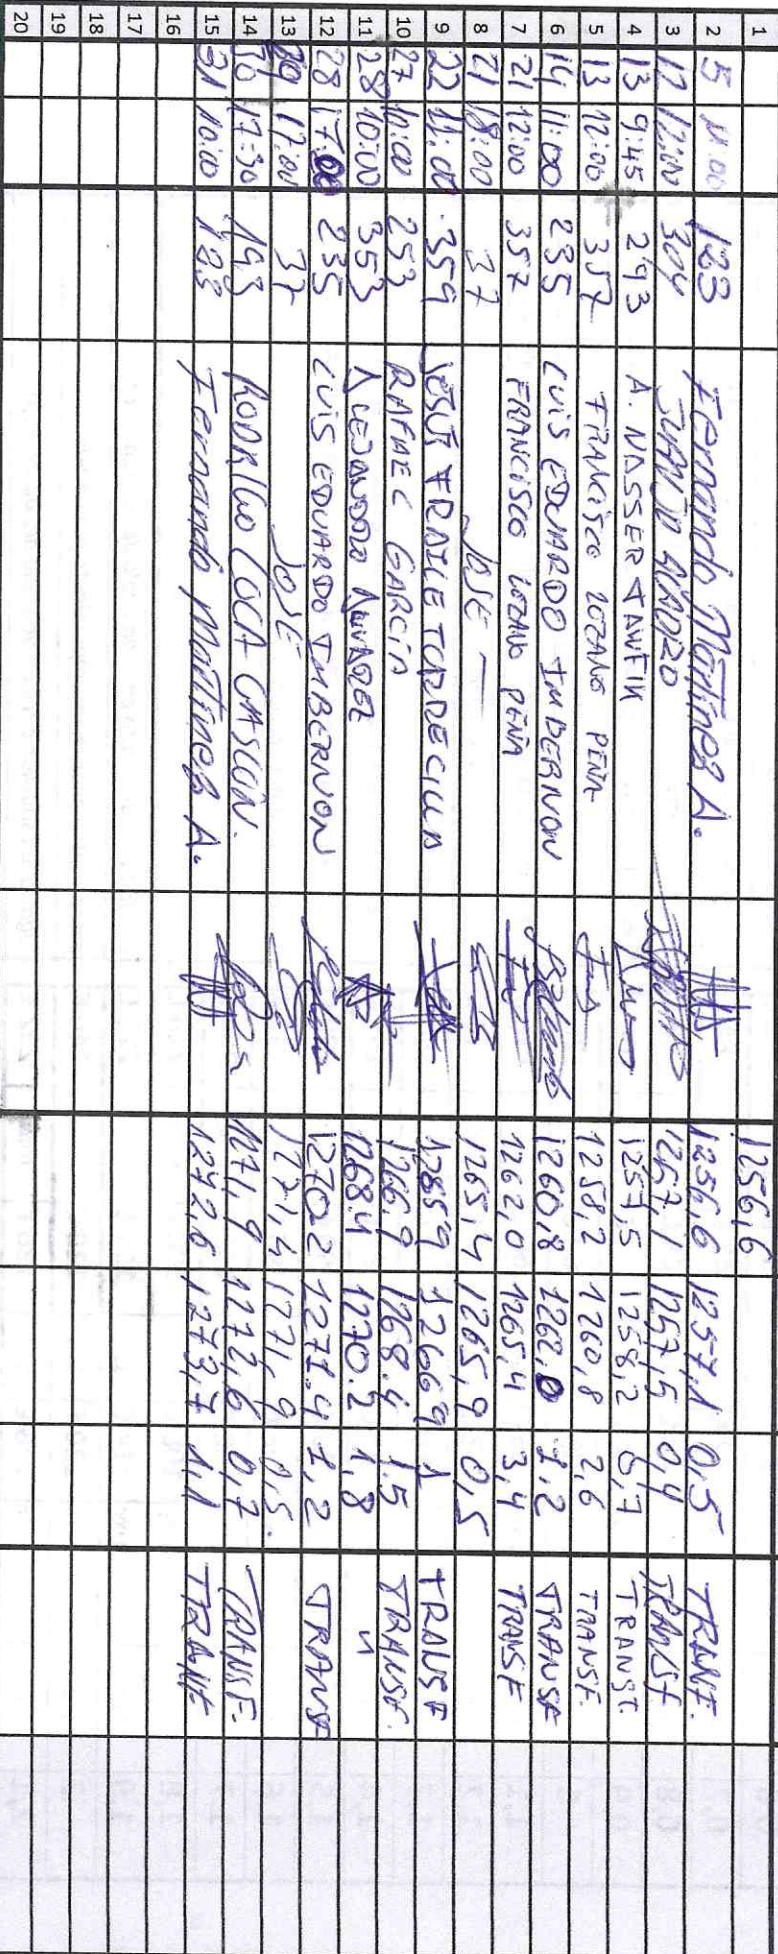 1 1256,6
2 5 11:00 183 Fernando Martínez A. 1256,6 1257,1 0,5 TRANF.
3 12 12:00 304 1257,1 1257,5 0,4 TRANSF
4 13 9:45 293 A. NASSER TAWFIK 1257,5 1258,2 0,7 TRANSF.
5 13 12:00 357 FRANCISCO LOZANO PEÑA 1258,2 1260,8 2,6 TRANSF.
6 14 11:00 235 LUIS EDUARDO IMBERNON 1260,8 1262,0 1.2 TRANSF
7 21 12:00 357 FRANCISCO LOZANO PEÑA 1262,0 1265,4 3,4 TRANSF
8 21 18:00 37 JOSE — 1265,4 1265,9 0,5
9 22 11:00 359 JESUS FRAILE TORRECILLA 1265,9 1266,9 1 TRANSF
10 27 10:00 253 RAFAEL GARCIA 1266.9 1268.4 1.5 TRANSF.
11 28 10:00 353 ALEJANDRO ALVAREZ 1268.4 1270.2 1,8 "
12 28 17:00 235 LUIS EDUARDO IMBERNON 1270.2 1271.4 1,2 TRANSF
13 29 17:00 37 JOSE 1271,4 1271,9 0,5.
14 30 17:30 193 RODRIGO COCA GASCÓN. 1271,9 1272,6 0,7 TRANSF.
15 31 10:00 183 Fernando Martínez A. 1272,6 1273,7 1.1 TRANF
16
17
18
19
20